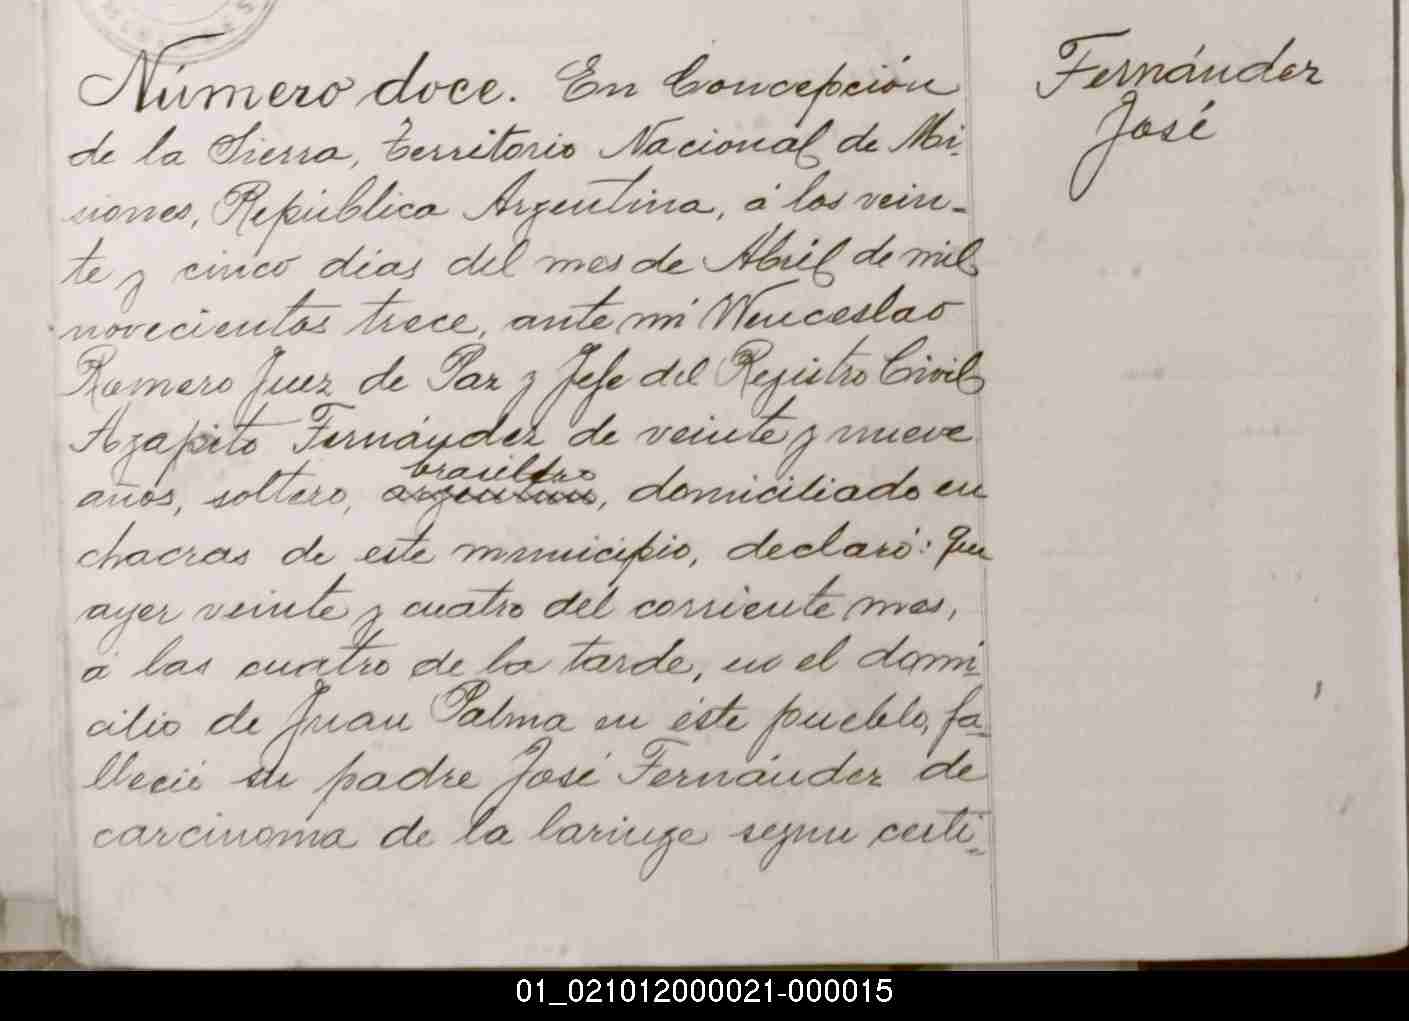 Número doce. En Concepción
de la Sierra, territorio Nacional de Mi-
siones, República Argentina, á los vein-
te y cinco dias del mes de Abril de mil
novecientos trece, ante mi Wenceslao
Romero Juez de Paz y Jefe del Registro Civil
Agapito Fernández de veinte y nueve
brasilero
años, soltero, argentino, domiciliado en
chacras de este municipio, declaró: Que
ayer veinte y cuatro del corriente mes,
á las cuatro de la tarde, en el domi-
cilio de Juan Palma en éste pueblo, fa-
lleció su padre José Fernández de
carcinoma de la laringe segun certi-
Fernández
José
01_021012000021-000015